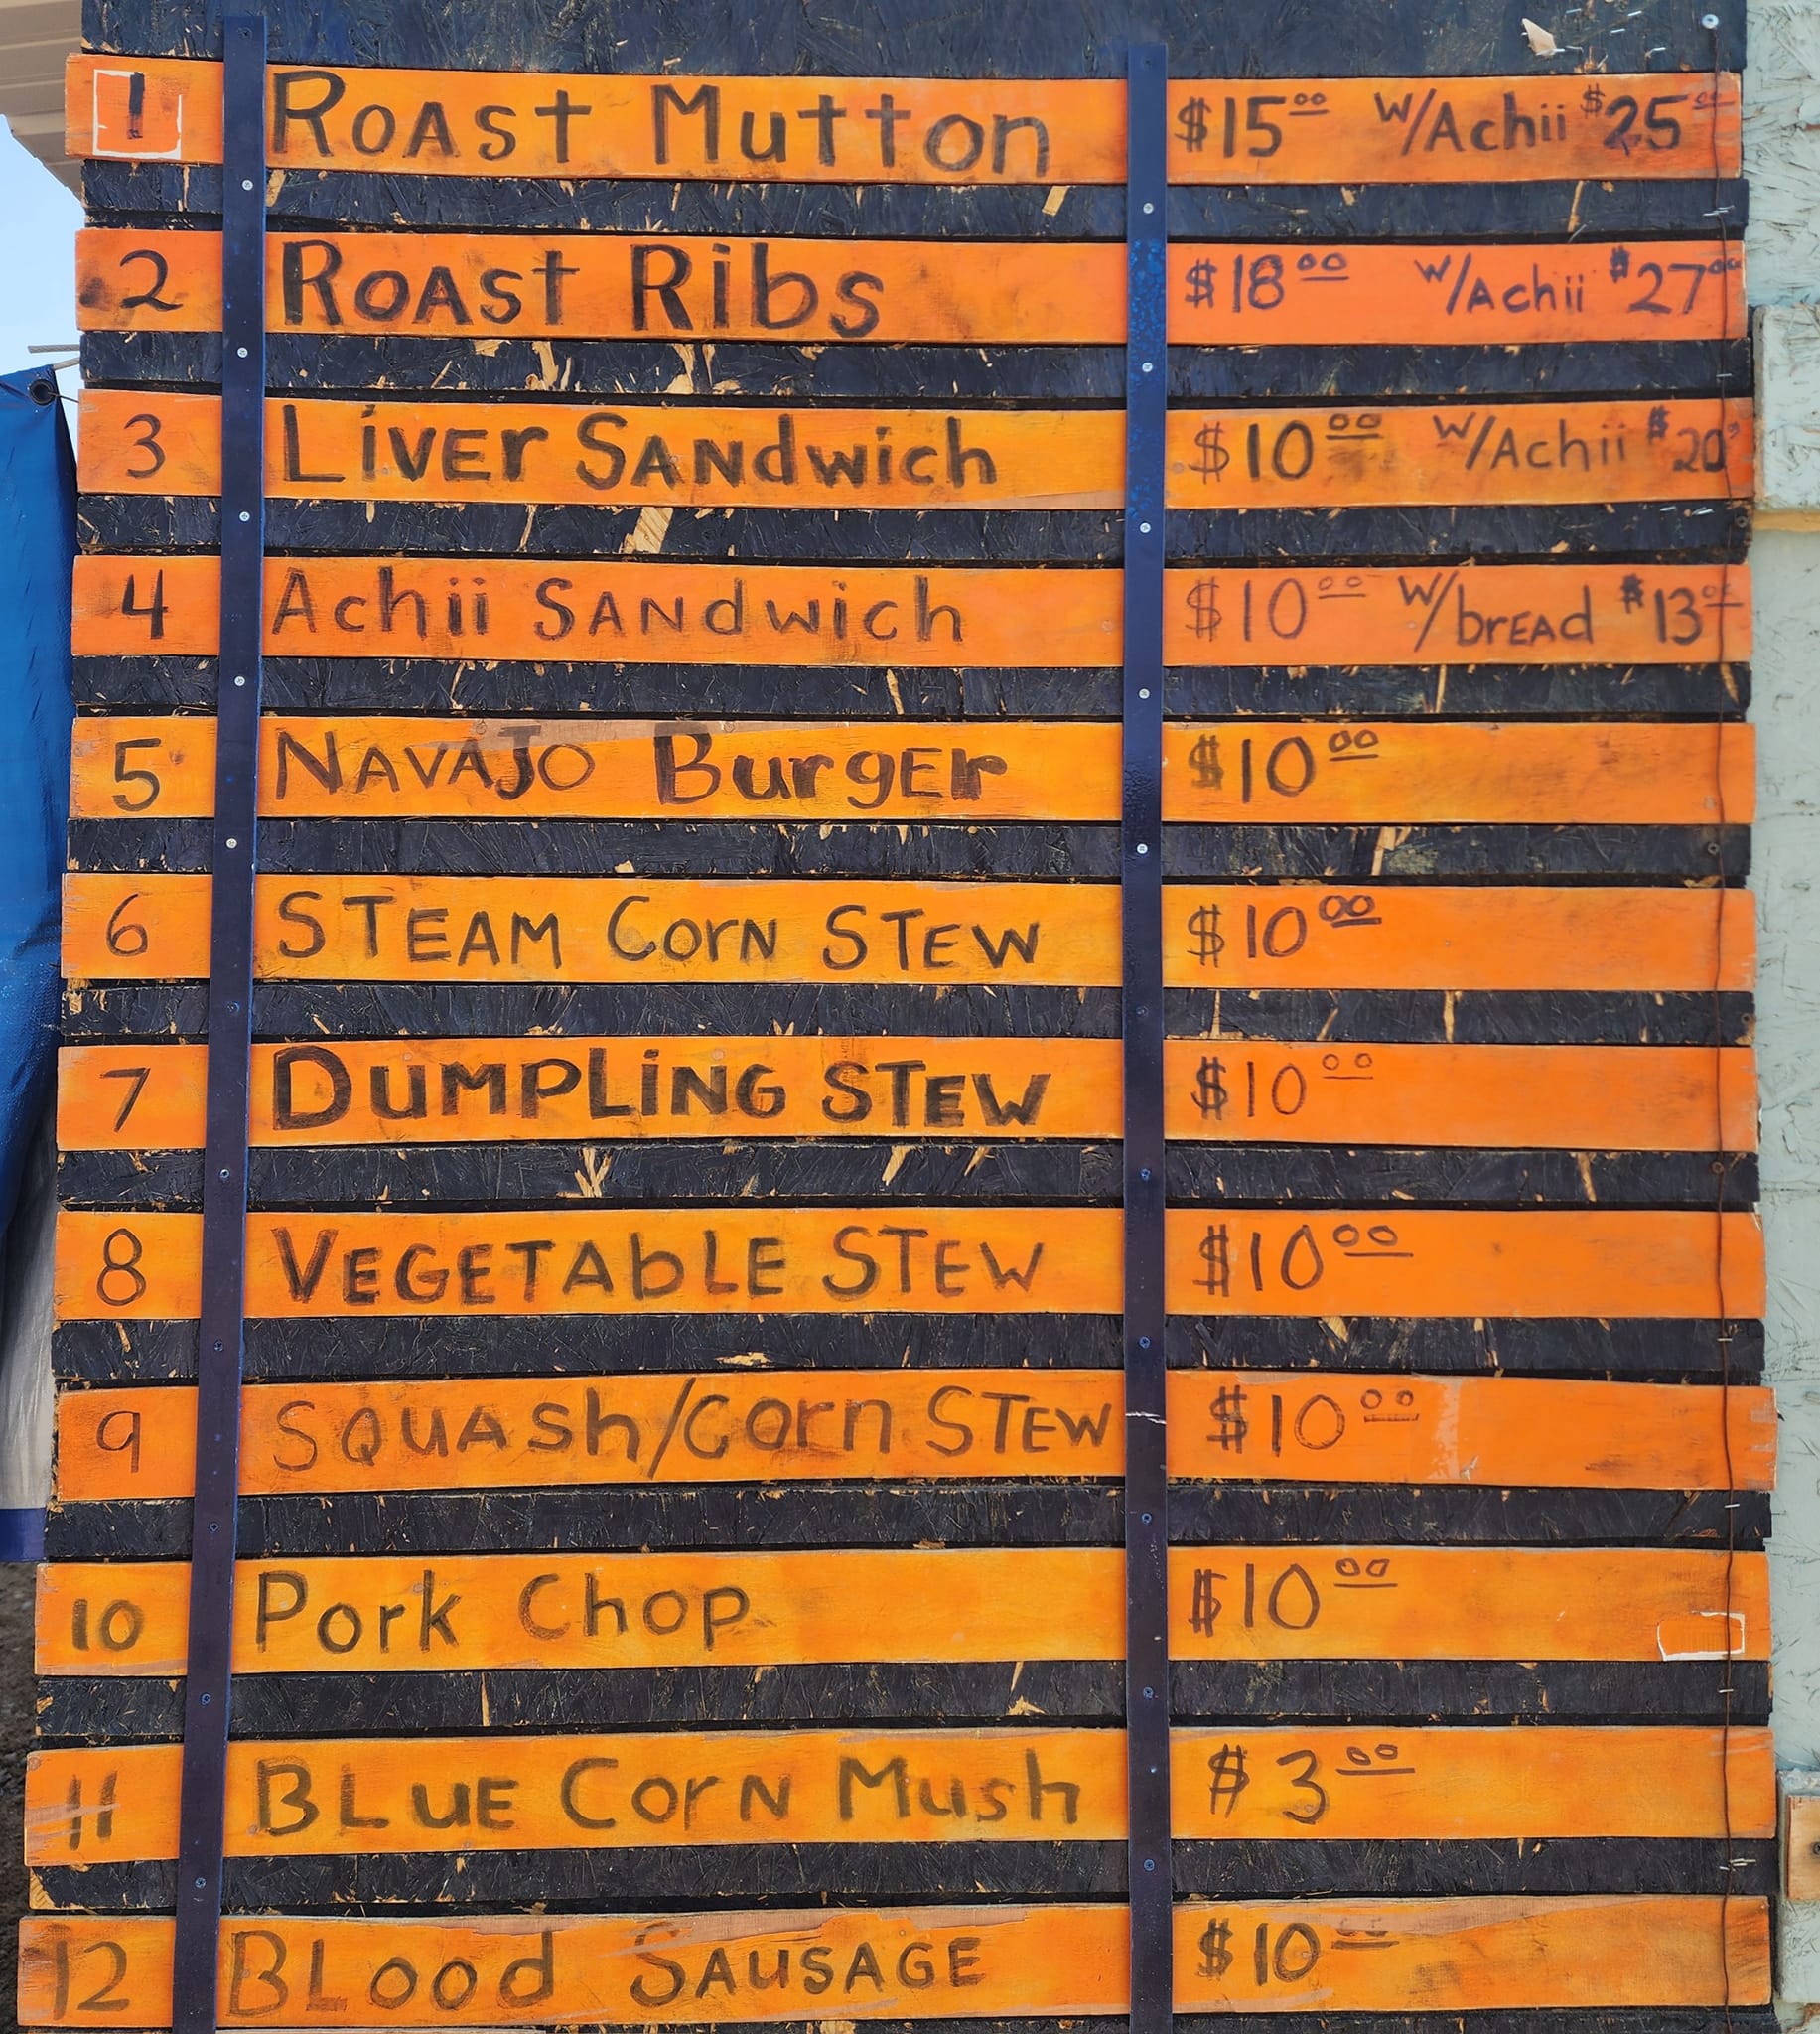 1 Roast Mutton $15⁰⁰ w/Achii $25⁰⁰
2 Roast Ribs $18⁰⁰ w/Achii $27⁰⁰
3 Liver Sandwich $10⁰⁰ w/Achii $20
4 Achii Sandwich $10⁰⁰ w/bread $13⁰⁰
5 Navajo Burger $10⁰⁰
6 Steam Corn Stew $10⁰⁰
7 Dumpling Stew $10⁰⁰
8 Vegetable Stew $10⁰⁰
9 Squash/Corn Stew $10⁰⁰
10 Pork Chop $10⁰⁰
11 Blue Corn Mush $3⁰⁰
12 Blood Sausage $10⁰⁰